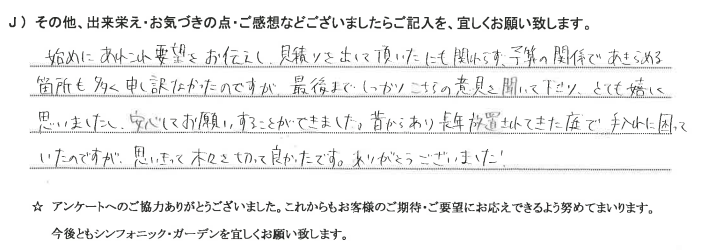 J）その他、出来栄え・お気づきの点・ご感想などございましたらご記入を、宜しくお願い致します。
始めにあれこれ要望をお伝えし、見積りを出して頂いたにも関わらず、予算の関係であきらめる
箇所も多く申し訳なかったのですが、最後までしっかりこちらの意見を聞いて下さり、とても嬉しく
思いましたし、安心してお願いすることができました。昔からあり長年放置されてきた庭で手入れに困って
いたのですが、思いきって木々を切って良かったです。ありがとうございました!
☆ アンケートへのご協力ありがとうございました。これからもお客様のご期待・ご要望にお応えできるよう努めてまいります。
今後ともシンフォニック・ガーデンを宜しくお願い致します。